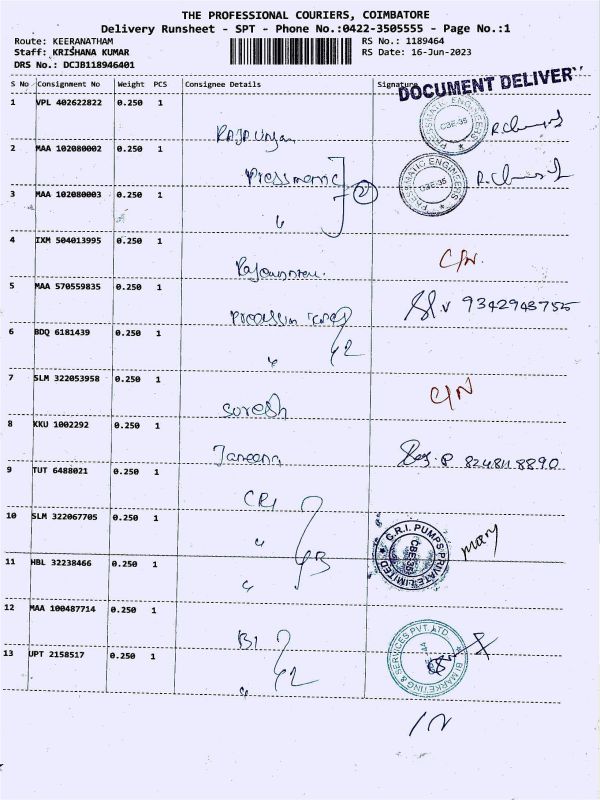 THE PROFESSIONAL COURIERS, COIMBATORE
Delivery Runsheet - SPT - Phone No.:0422-3505555 - Page No.:1
Route: KEERANATHAM
Staff: KRISHANA KUMAR
DRS No.: DCJB118946401
RS No.: 1189464
RS Date: 16-Jun-2023
S No Consignment No Weight PCS Consignee Details Signature
DOCUMENT DELIVERY
1 VPL 402622822 0.250 1
PRESSMATIC ENGINEERS
CBE-35
2 MAA 102080002 0.250 1
PRESSMATIC ENGINEERS
CBE-35
3 MAA 102080003 0.250 1
2
4 IXM 504013995 0.250 1
C/N.
5 MAA 570559835 0.250 1
9342943755
6 BDQ 6181439 0.250 1
7 SLM 322053958 0.250 1
C/N
Suresh
8 KKU 1002292 0.250 1
8248118890
9 TUT 6488021 0.250 1
CRI
10 SLM 322067705 0.250 1
C.R.I. PUMPS PRIVATE LIMITED
CBE-35
mary
11 HBL 32238466 0.250 1
12 MAA 100487714 0.250 1
BI
BI MARKETING & SERVICES PVT. LTD
13 UPT 2158517 0.250 1